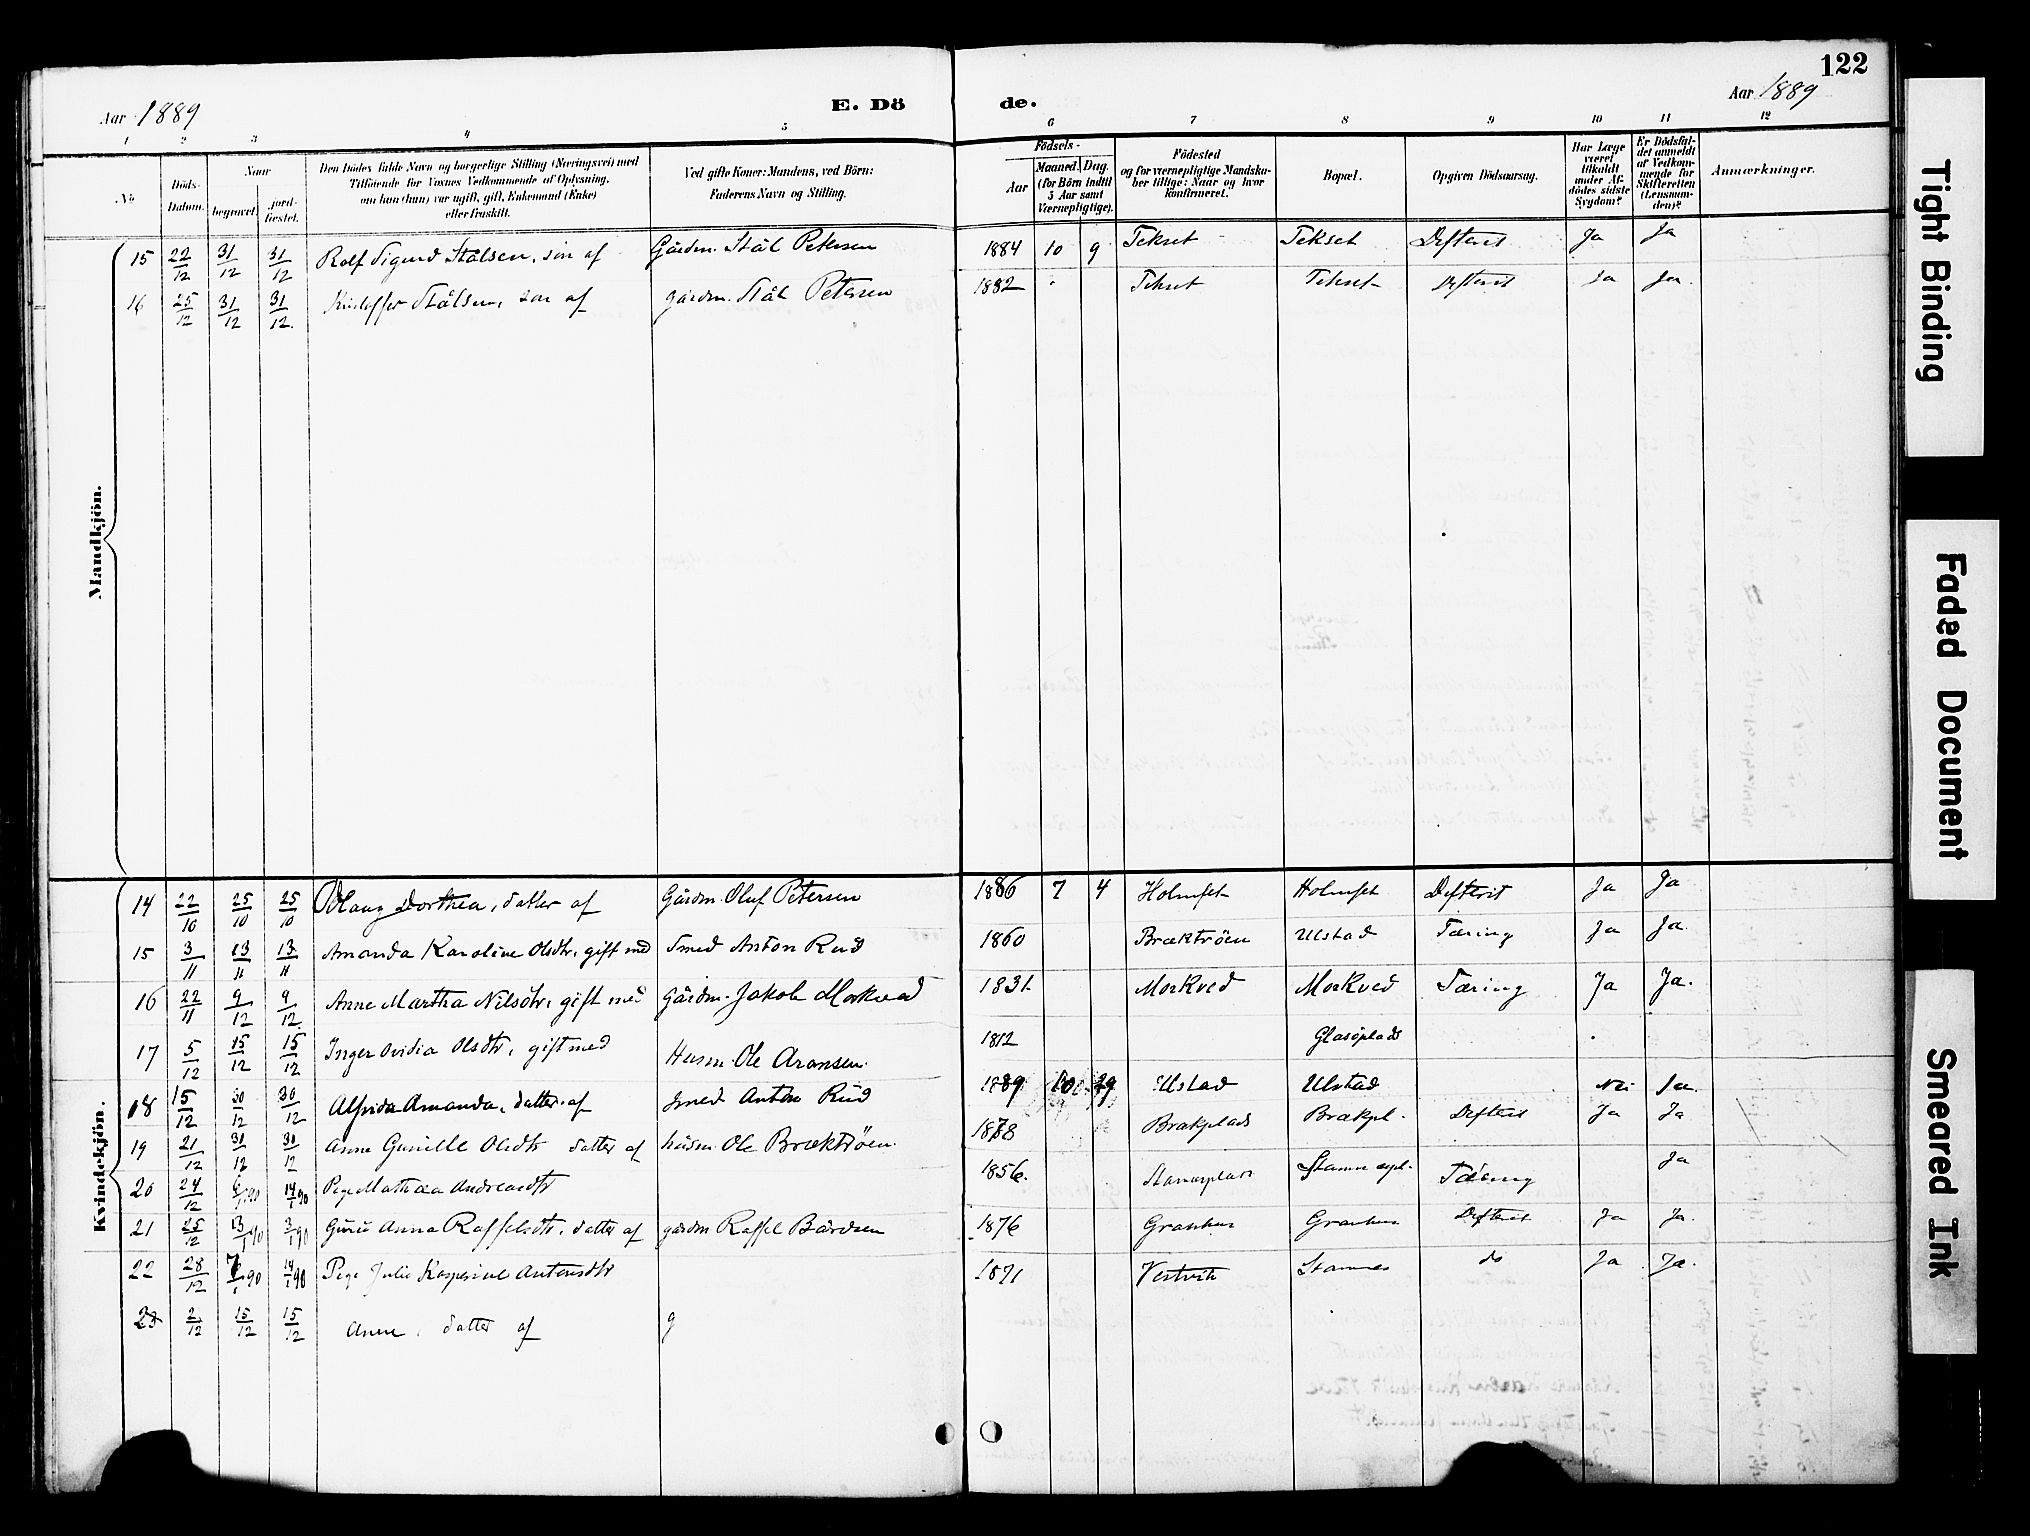 122
Aar 1889
E. Dö
de.
Aar 1889
1 2 3 4 5 6 7 8 9 10 11 12
No
Döds-Datum.
Naar
begravet.
jord-fæstet.
Den Dödes fulde Navn og borgerlige Stilling (Næringsvei) med
Tilföiende for Voxnes Vedkommende af Oplysning,
om han (hun) var ugift, gift, Enkemand (Enke)
eller fraskilt.
Ved gifte Koner: Mandens, ved Börn:
Faderens Navn og Stilling.
Födsels-
Aar
Maaned. Dag.
(for Börn indtil
5 Aar samt
Værnepligtige).
Födested
og for værnepligtige Mandska-
ber tillige: Naar og hvor
konfirmeret.
Bopæl.
Opgiven Dödsaarsag.
Har Læge
været
tilkaldt
under Af-
dödes sidste
Sygdom?
Er Dödsfal-
det anmeldt
af Vedkom-
mende for
Skifteretten
(Lensman-
den)?
Anmærkninger.
Mandkjön.
15 22/12 31/12 31/12 Rolf Sigurd Stålsen, sön af Gårdm. Stål Petersen 1884 10 9 Tekset Tekset Difterit Ja Ja
16 25/12 31/12 31/12. Kristoffer Stålsen, sön af gårdm. Stål Petersen 1882 Tekset Tekset Difterit Ja Ja.
Kvindekjön.
14 22/10 25/10 25/10 Dorthea, datter af Gårdm. Oluf Petersen 1886 7 4 Holmset Holmset Difterit Ja Ja
15 3/11 13/11 13/11 Amanda Karoline Olsdtr. gift med Smed Anton Rud 1860 Bræktröen Ulstad Tæring Ja Ja.
16 22/11 9/12 9/12. Anne Martha Nilsdtr. gift med Gårdm. Jakob Morkved 1831 Morkved Morkved Tæring Ja Ja.
17 5/12 15/12 15/12 Inger Ovidia Olsdtr. gift med Husm. Ole Aronsen. 1812 Glasöplads
18 15/12 30/12 30/12 Alfrida Amanda, datter af Smed Anton Rud 1889 10 29 Ulstad Ulstad Nei Ja.
19 21/12 31/12 30/12 Anne Gunille Olsdtr datter af husm. Ole Bræktröen. 1878 Brækplads Brækpl. Difterit Ja Ja
20 24/12 6/1 90 14/1 90 Pige Mathæa Andreasdtr 1856. Stamnesplads Stamnespl. Tæring Ja
21 25/12 13/1 90 3/1 90 Guru Anna Raffelsdtr. datter af gårdm Raffel Bårdsen 1876 Granhus Granhus Difterit Ja Ja.
22 28/12 7/1 90 14/1 90 Pige Julie Kaspesine Antonsdtr 1871 Vestvik Stamnes do Ja Ja.
23 2/12 15/12 15/12 Anne, datter af g
Tight Binding
Faded Document
Smeared Ink